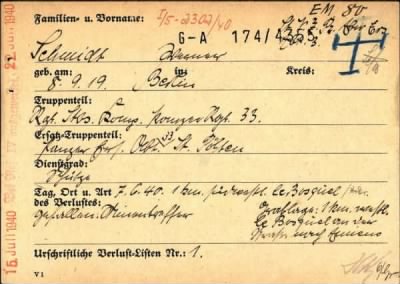 Familien- u. Vorname: I/5-2302/40 EM 80
G-A 174/4355
Schmidt Werner
geb. am: in: Kreis:
8.9.19 Berlin
Truppenteil:
Rgt. Stbs. Komp. Panzer Rgt. 33.
Ersatz-Truppenteil:
Panzer Ers. Abt. 33 St. Pölten
Dienstgrad:
Schütze
Tag, Ort u. Art 7.6.40. 1 km südwestl. le Bosquel
des Verlustes: Grablage: 1 km westl.
gefallen: le Bosquel an der
Straße nach
Urschriftliche Verlust-Listen Nr.: 1.
V 1
15. Juli 1940
22. Juli 1940